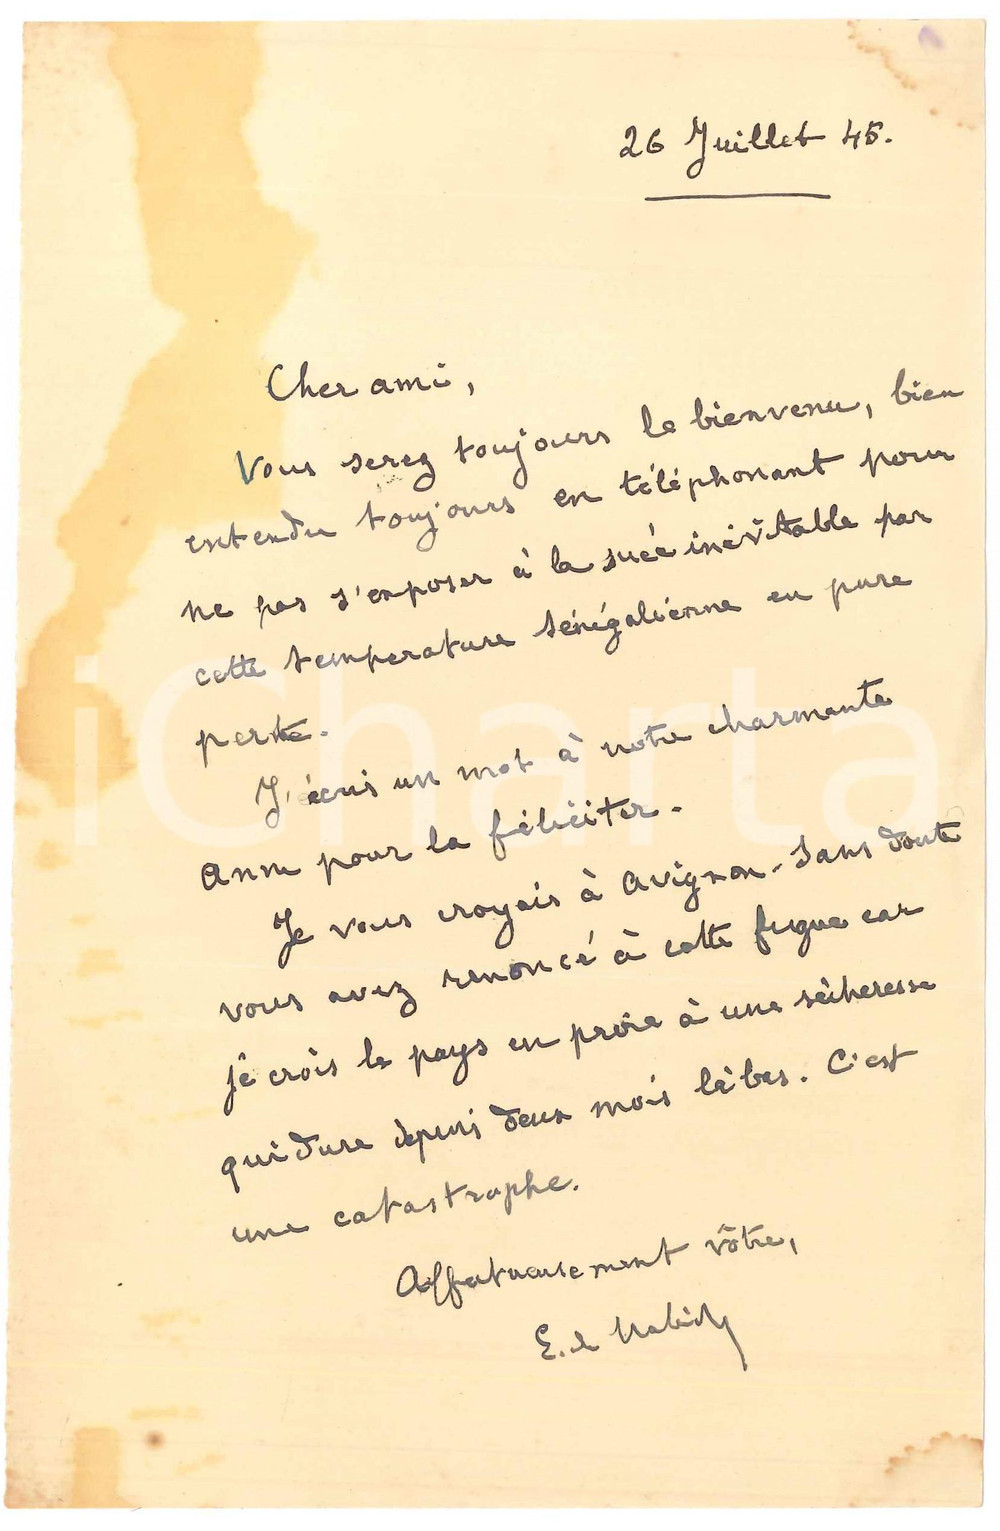 26 Juillet 45.
Cher ami,
Vous serez toujours le bienvenu, bien
entendu toujours en téléphonant pour
ne pas s'exposer à la suée inévitable par
cette température sénégalienne en pure
perte.
J'écris un mot à notre charmante
Anne pour la féliciter.
Je vous croyais à Avignon. Sans doute
vous avez renoncé à cette fugue car
je crois le pays en proie à une sécheresse
qui dure depuis deux mois là bas. C'est
une catastrophe.
Affectueusement vôtre,
E. de
iCharta